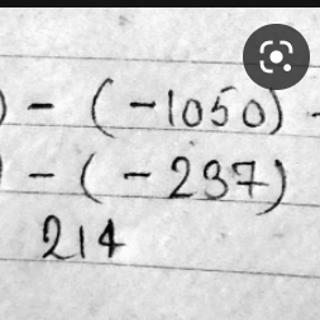 ) - (-1050) -
) - (-237)
214